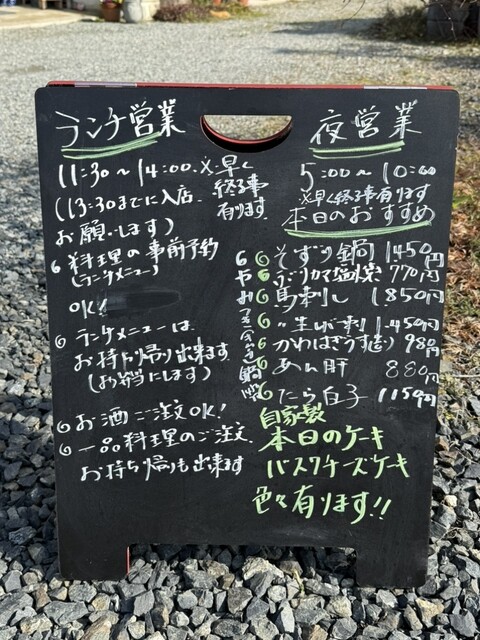 ランチ営業
11:30〜14:00.※早く
終る事
有ります
(13:30までに入店
お願いします)
料理の事前予約
(ランチメニュー)
OK!
ランチメニューは、
お持ち帰り出来ます
(お弁当にします)
お酒ご注文OK!
一品料理のご注文、
お持ち帰りも出来ます
夜営業
5:00〜10:00
※早く終る事有ります
本日のおすすめ
そずり鍋 1450円
ぶりカマ塩焼 770円
馬刺し 1850円
〃生レバ刺 1,450円
かわはぎうす造り 980円
あん肝 880円
たら白子 1159円
自家製
本日のケーキ
バスクチーズケーキ
色々有ります!!